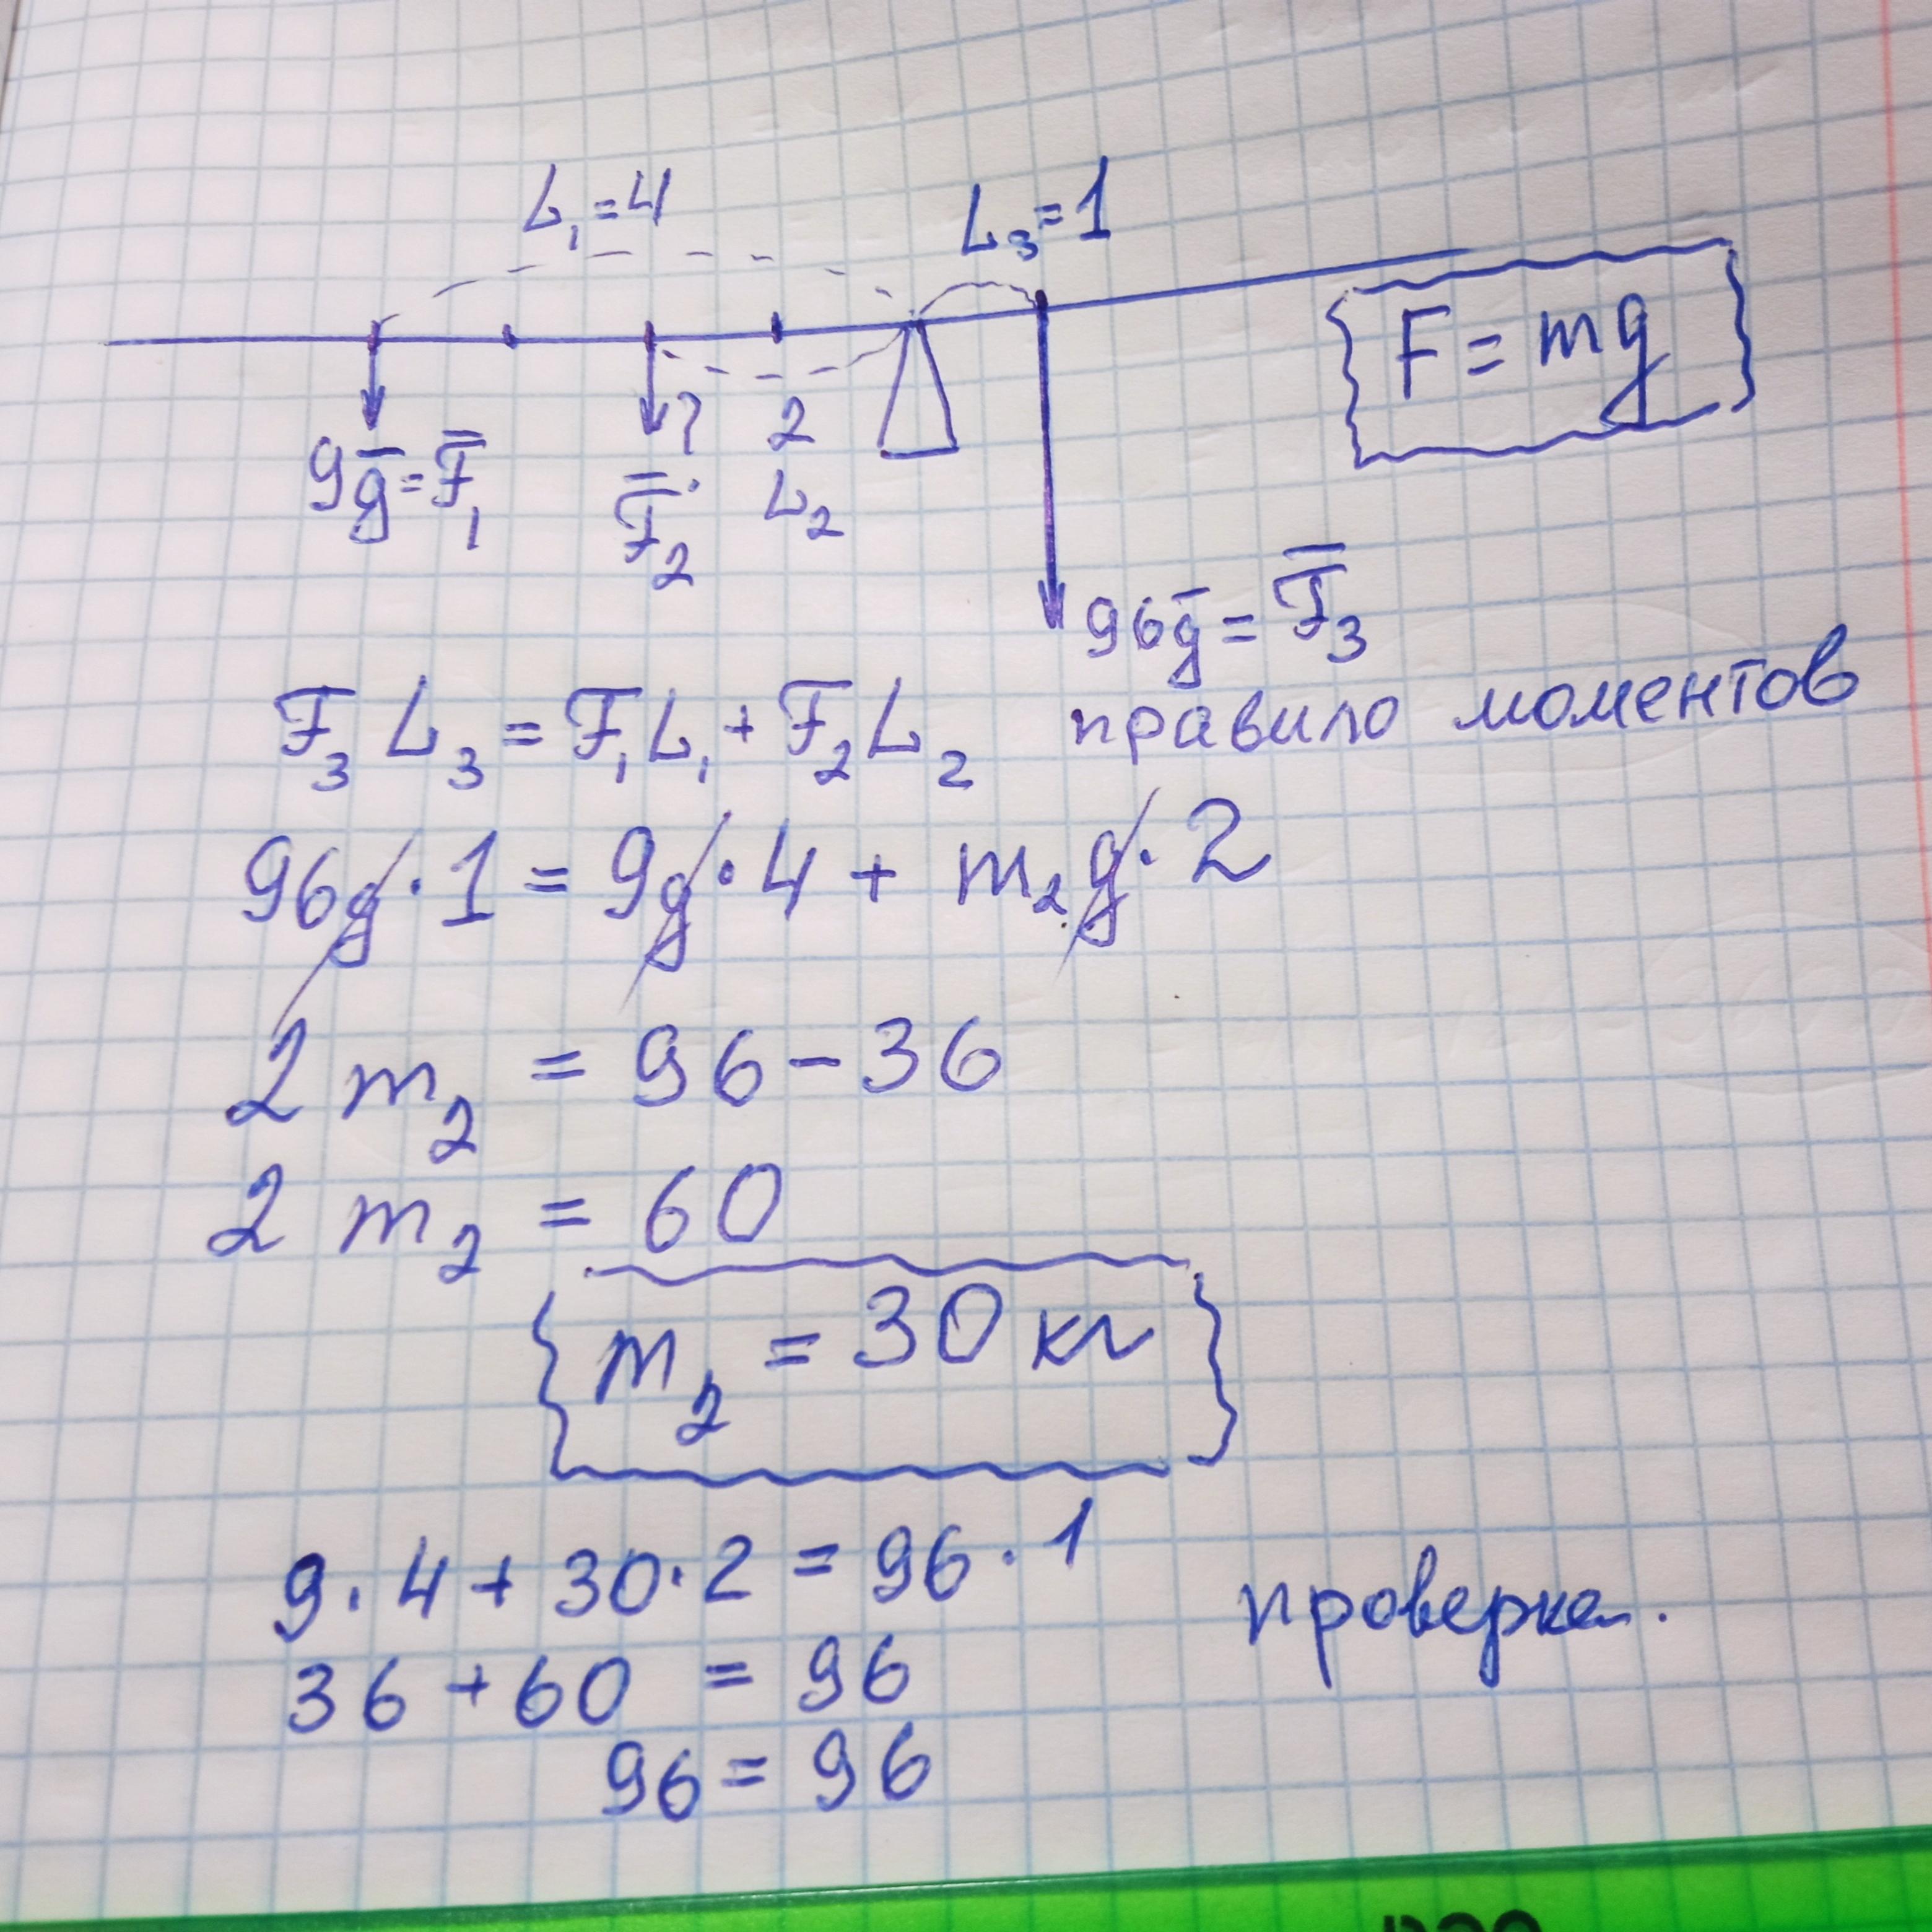 L₁=4
L₃=1
F = mg
9g̅=F̅₁
?
F̅₂
2
L₂
96g̅ = F̅₃
F₃ L₃ = F₁L₁ + F₂L₂ правило моментов
96g·1 = 9g·4 + m₂g·2
2 m₂ = 96-36
2 m₂ = 60
m₂ = 30 кг
9·4 + 30·2 = 96·1
проверка.
36 + 60 = 96
96 = 96